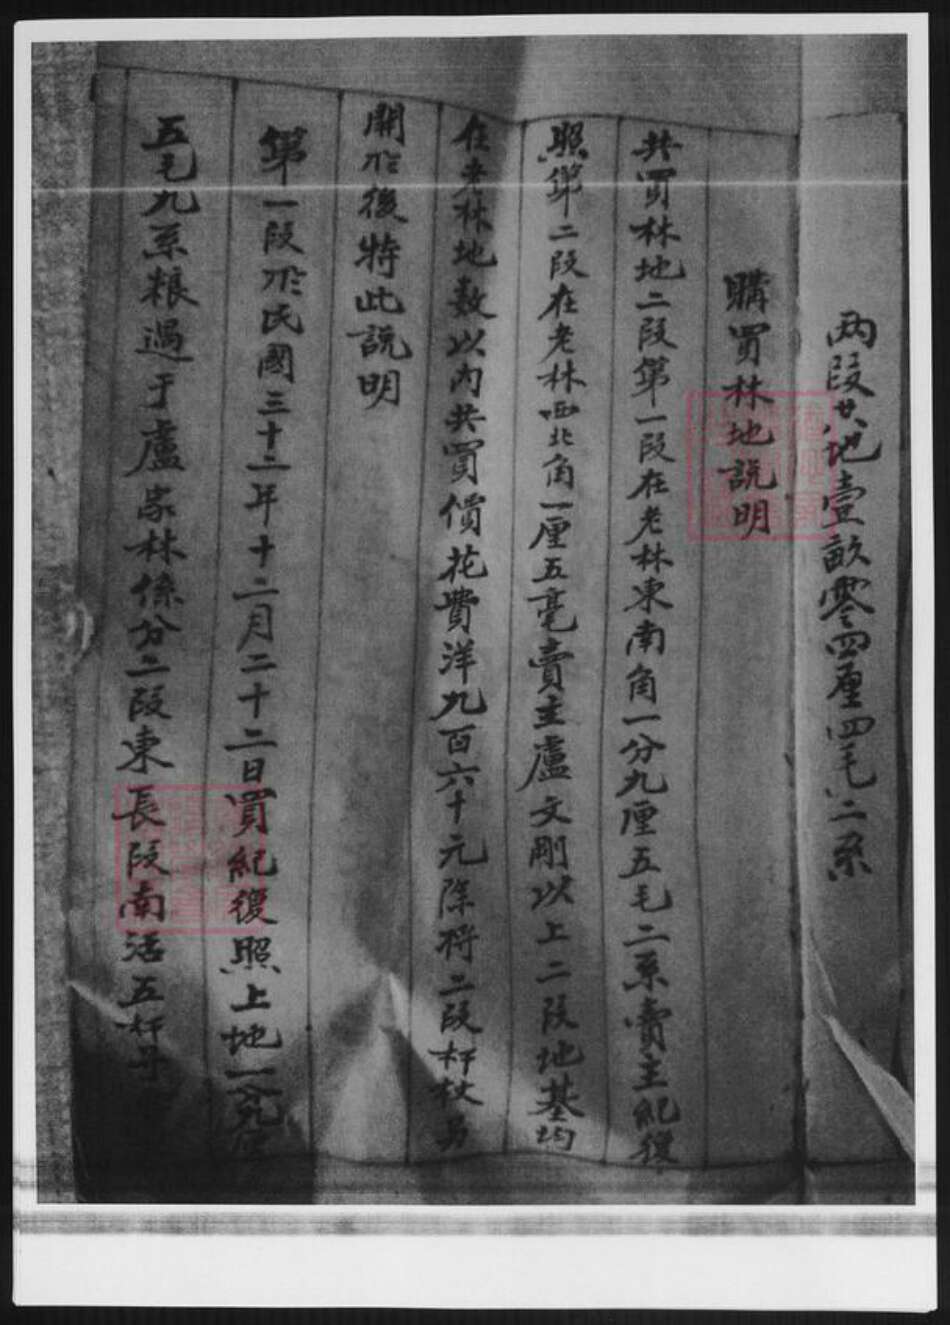 兩段共地壹畝零四厘四毛二系
購買林地說明
共買林地二段第一段在老林東南角一分九厘五毛二系賣主紀復
照第二段在老林西北角一厘五毫賣主盧文剛以上二段地基均
在老林地數以內共買價花費洋九百六十元除將二段杆杖另
開於後特此説明
第一段於民國三十二年十二月二十二日買紀復照上地一分九厘
五毛九系粮過于盧家林係分二段東長段南活五杆